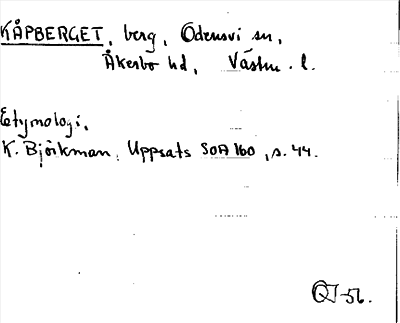 KÅPBERGET, berg, Odensvi sn,
Åkerbo hd, Västm. l.
Etymologi,
K. Björkman, Uppsats SOA 160, s. 44.
-56.